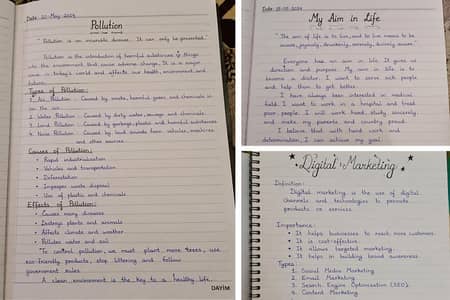 Date: 20-May-2024
Pollution
"Pollution is an miserable disease. It can only be prevented."
Pollution is the introduction of harmful substances things
into the environment, that cause adverse change. It is a major
issue in today's world and affects our health, environment and
future.
Types of Pollution:
1. Air Pollution - Caused by smoke, harmful gases, and chemicals in
in the air.
2. Water Pollution - Caused by dirty water, sewage and chemicals.
3. Land Pollution - Caused by garbage, plastic and harmful substances
4. Noise Pollution - Caused by loud sounds from vehicles, machines
and other sources
Causes of Pollution:
• Rapid industrialization
• Vehicles and transportation
• Deforestation
• Improper waste disposal
• Use of plastic and chemicals
Effects of Pollution:
• Causes many diseases
• Destroys plants and animals
• Affects climate and weather
• Pollutes water and soil
To control pollution, we must plant more trees, use
eco-friendly products, stop littering and follow
government rules
A clean environment is the key to a healthy life.
DAYIM
Date: 2024
My Aim in Life
"The aim of life is to live, and to live means to be
aware, joyously, drunkenly, serenely, divinely aware."
Everyone has an aim in life. It gives us
direction and purpose. My aim in life is to
become a doctor. I want to serve sick people
and help them to get better.
I have always been interested in medical
field. I want to work in a hospital and treat
poor people. I will work hard, study, sincerely,
and make my parents and country proud.
I believe that with hard work and
determination, I can achieve my goal.
Digital Marketing
Definition:
Digital marketing is the use of digital
channels and technologies to promote
products or services
Importance:
• It helps businesses to reach more customers.
• It is cost-effective.
• It allows targeted marketing.
• It helps in building brand awareness
Types:
1. Social Media Marketing
2. Email Marketing
3. Search Engine Optimization (SEO).
4. Content Marketing